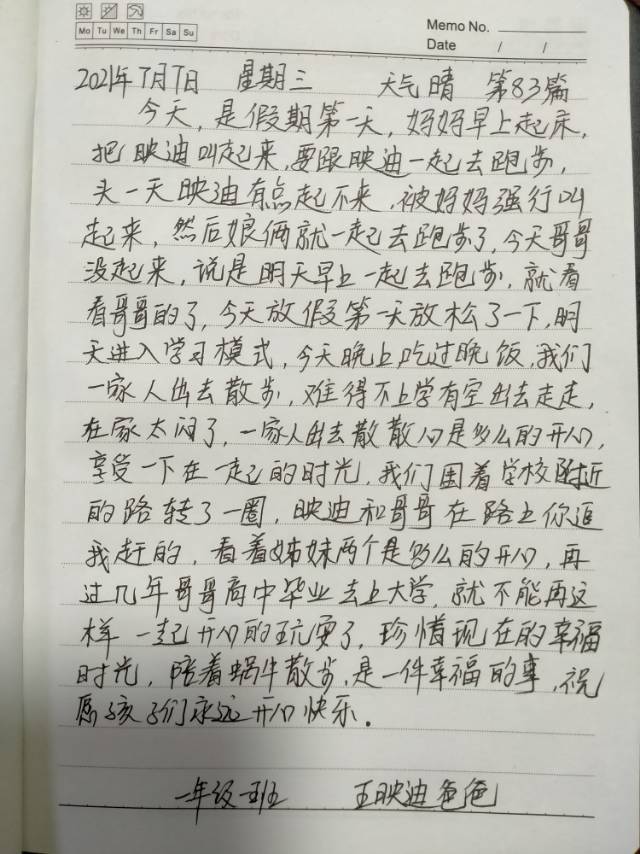 Mo Tu We Th Fr Sa Su
Memo No.
Date / /
2021年7月7日 星期三 天气晴 第83篇
今天,是假期第一天,妈妈早上起床,
把映迪叫起来,要跟映迪一起去跑步,
头一天映迪有点起不来,被妈妈强行叫
起来,然后娘俩就一起去跑步了,今天哥哥
没起来,说是明天早上一起去跑步,就看
看哥哥的了,今天放假第一天放松了一下,明
天进入学习模式,今天晚上吃过晚饭,我们
一家人出去散步,难得不上学有空出去走走,
在家太闷了,一家人出去散散心是多么的开心,
享受一下在一起的时光,我们围着学校附近
的路转了一圈,映迪和哥哥在路上你追
我赶的,看着姊妹两个是多么的开心,再
过几年哥哥高中毕业去上大学,就不能再这
样一起开心的玩耍了,珍惜现在的幸福
时光,陪着蜗牛散步,是一件幸福的事,祝
愿孩子们永远开心快乐。
一年级一班 王映迪爸爸